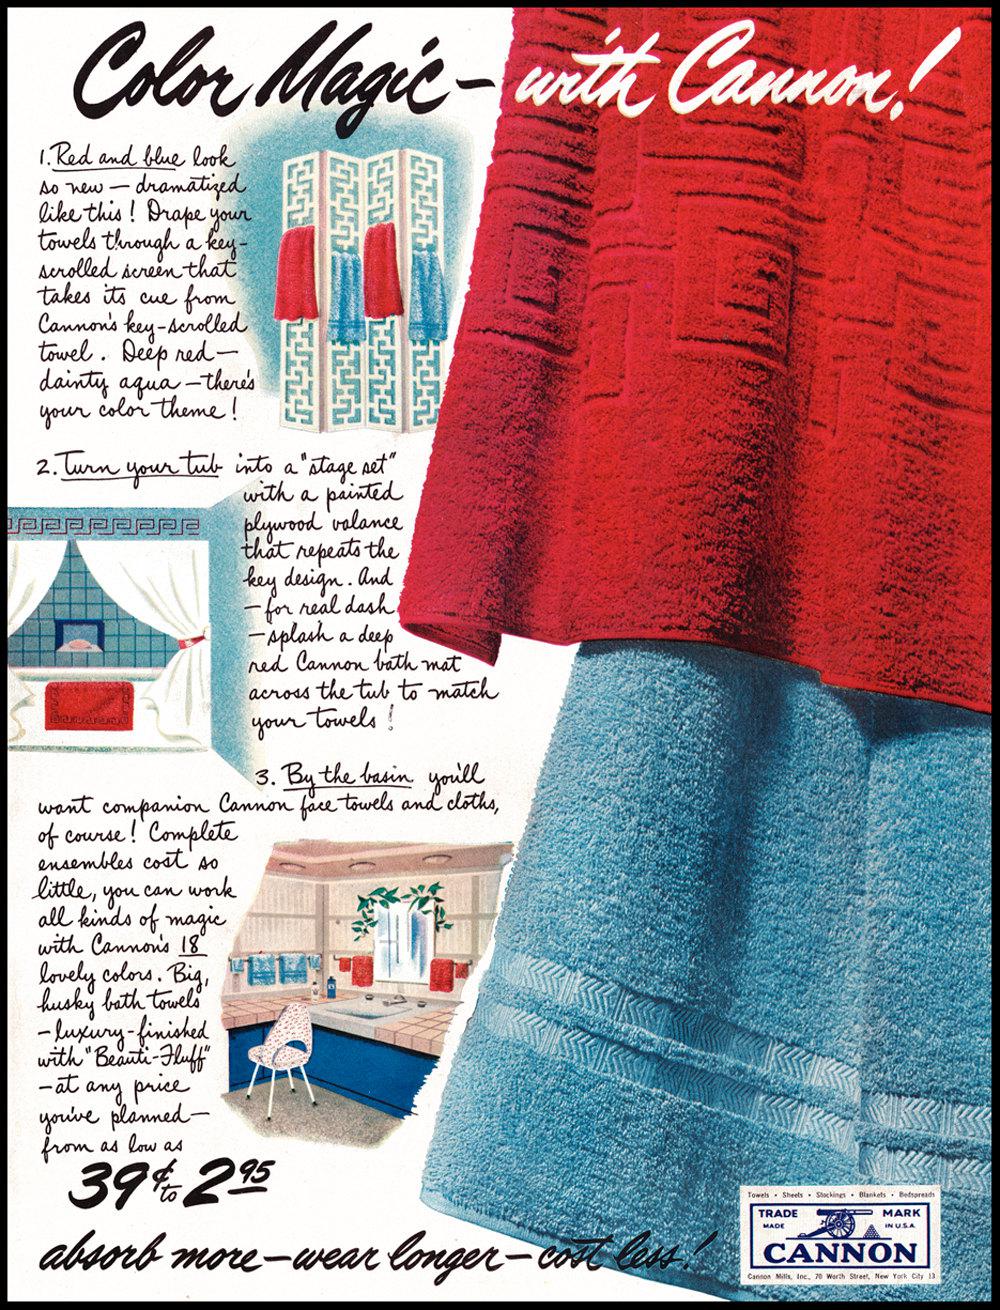 Color Magic — with Cannon!
1. Red and blue look
so new — dramatized
like this! Drape your
towels through a key-
scrolled screen that
takes its cue from
Cannon's key-scrolled
towel. Deep red —
dainty aqua — there's
your color theme!
2. Turn your tub into a "stage set"
with a painted
plywood valance
that repeats the
key design. And
— for real dash
— splash a deep
red Cannon bath mat
across the tub to match
your towels!
3. By the basin you'll
want companion Cannon face towels and cloths,
of course! Complete
ensembles cost so
little, you can work
all kinds of magic
with Cannon's 18
lovely colors. Big,
husky bath towels
— luxury-finished
with "Beauti-Fluff"
— at any price
you've planned —
from as low as
39¢ to 2.95
absorb more — wear longer — cost less!
Towels • Sheets • Stockings • Blankets • Bedspreads
TRADE MARK
MADE IN U.S.A.
CANNON
Cannon Mills, Inc., 70 Worth Street, New York City 13